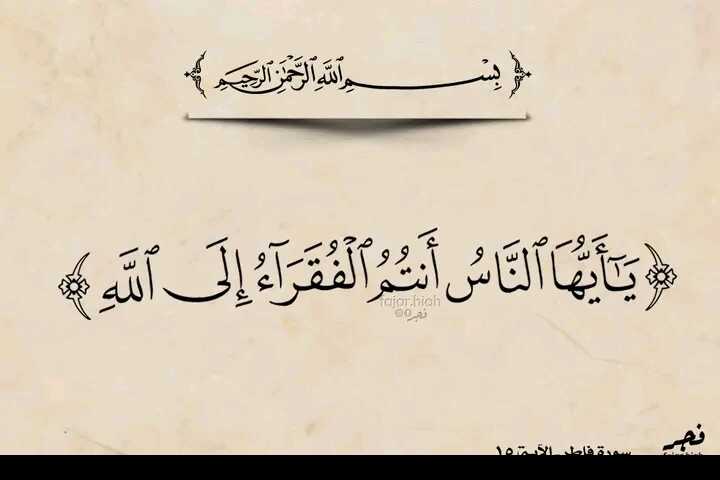 بِسْمِ ٱللَّهِ ٱلرَّحْمَٰنِ ٱلرَّحِيمِ
﴿ يَـٰٓأَيُّهَا ٱلنَّاسُ أَنتُمُ ٱلْفُقَرَآءُ إِلَى ٱللَّهِ ﴾
fajar.hiah
فجر
فجر
سورة فاطر الآية ١٥